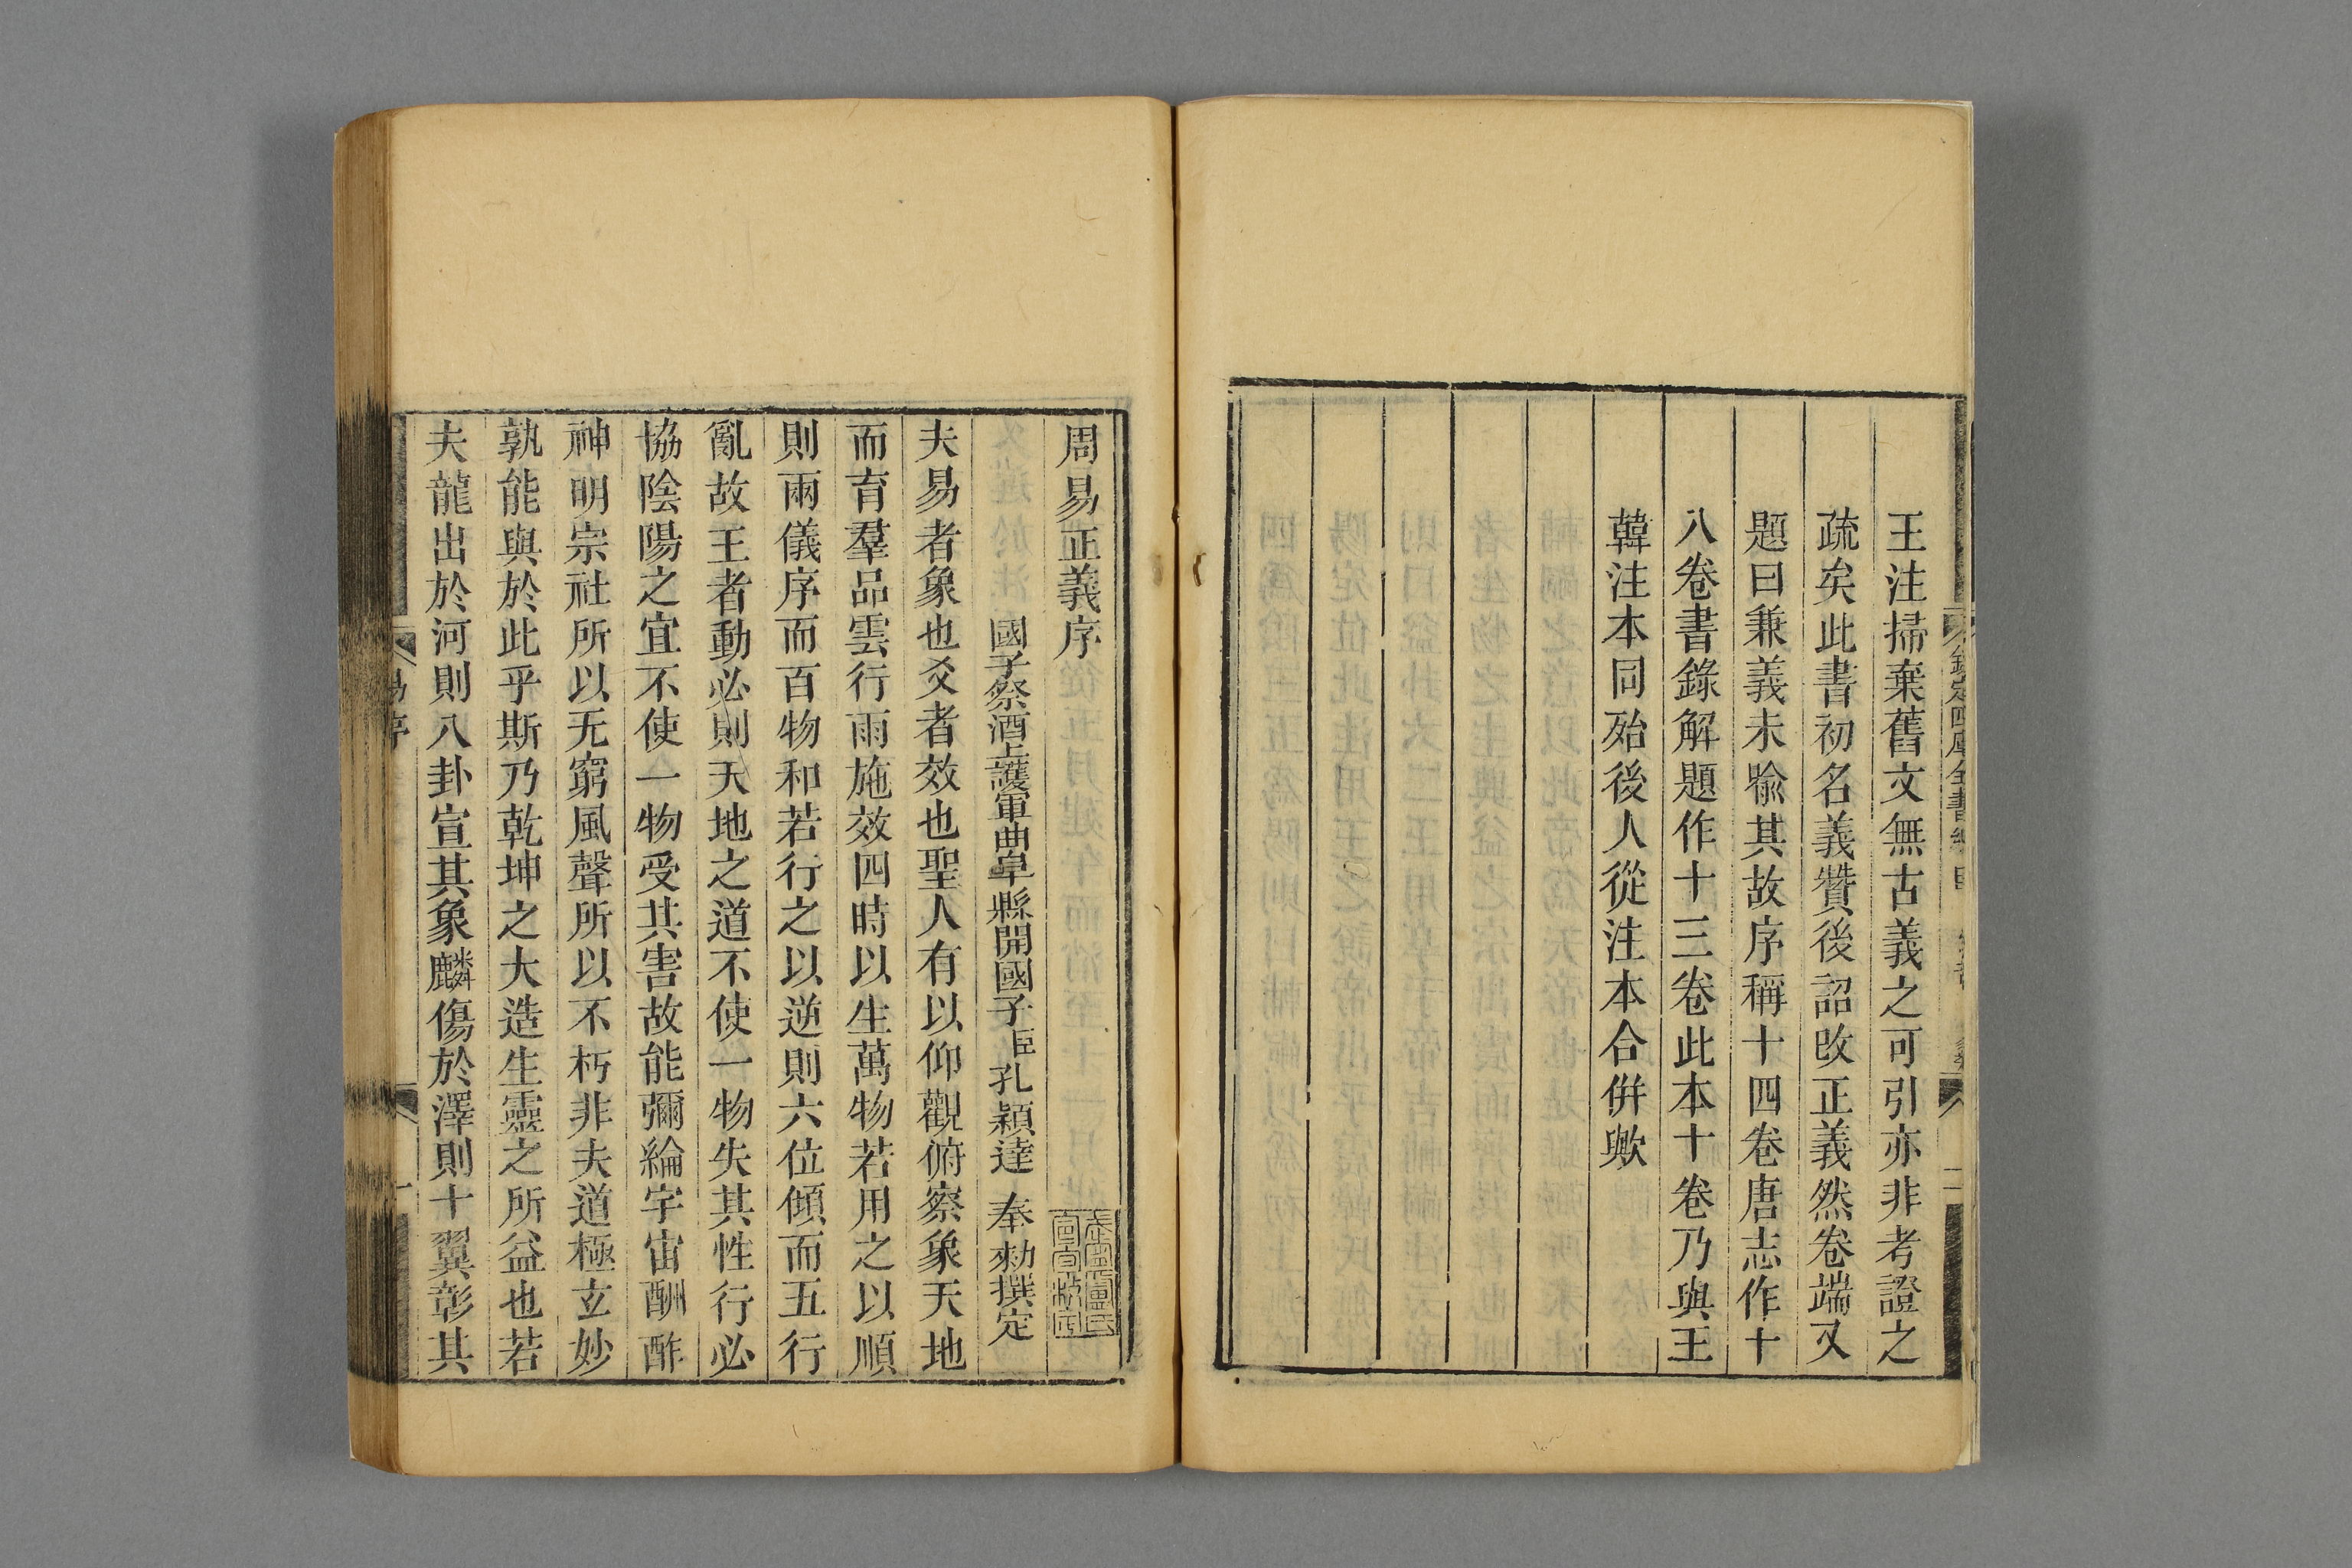 王注掃棄舊文無古義之可引亦非考證之
疏矣此書初名義贊後詔改正義然卷端又
題曰兼義未喻其故序稱十四卷唐志作十
八卷書錄解題作十三卷此本十卷乃與王
韓注本同殆後人從注本合併歟
周易正義序
國子祭酒上護軍曲阜縣開國子臣孔穎達奉勑撰定
夫易者象也爻者效也聖人有以仰觀俯察象天地
而育羣品雲行雨施效四時以生萬物若用之以順
則兩儀序而百物和若行之以逆則六位傾而五行
亂故王者動必則天地之道不使一物失其性行必
協陰陽之宜不使一物受其害故能彌綸宇宙酬酢
神明宗社所以无窮風聲所以不朽非夫道極玄妙
孰能與於此乎斯乃乾坤之大造生靈之所益也若
夫龍出於河則八卦宣其象麟傷於澤則十翼彰其